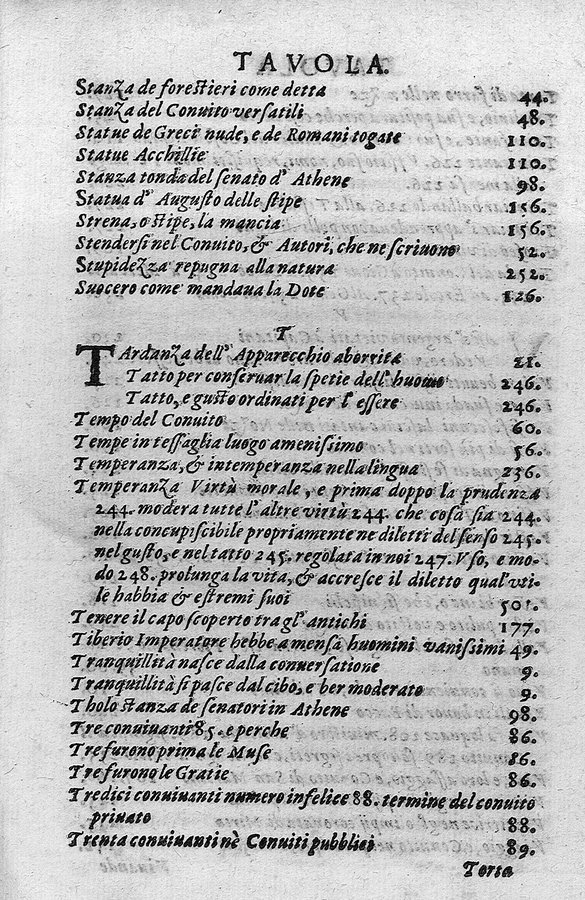 TAVOLA.
Stanza de forestieri come detta 44.
Stanza del Conuito versatili 48.
Statue de Greci nude, e de Romani togate 110.
Statue Acchillie 110.
Stanza tonda del senato d' Athene 98.
Statua d' Augusto delle stipe 156.
Strena, o stipe, la mancia 156.
Stendersi nel Conuito, & Autori, che ne scriuono 52.
Stupidezza repugna alla natura 252.
Suocero come mandaua la Dote 126.
T
TArdanza dell' Apparecchio aborrita 21.
Tatto per conseruar la spetie dell' huomo 246.
Tatto, e gusto ordinati per l' essere 246.
Tempo del Conuito 60.
Tempe in tessaglia luogo amenissimo 56.
Temperanza, & intemperanza nella lingua 236.
Temperanza Virtù morale, e prima doppo la prudenza
244. modera tutte l' altre virtù 244. che cosa sia 244.
nella concupiscibile propriamente ne diletti del senso 245.
nel gusto, e nel tatto 245. regolata in noi 247. Vso, e mo-
do 248. prolunga la vita, & accresce il diletto qual vti-
le habbia & estremi suoi 501.
Tenere il capo scoperto tra gl' antichi 177.
Tiberio Imperatore hebbe a mensa huomini vanissimi 49.
Tranquillità nasce dalla conuersatione 9.
Tranquillità si pasce dal cibo, e ber moderato 9.
Tholo stanza de senatori in Athene 98.
Tre conuiuanti 85. e perche 86.
Tre furono prima le Muse 86.
Tre furono le Gratie 86.
Tredici conuiuanti numero infelice 88. termine del conuito
priuato 88.
Trenta conuiuanti nè Conuiti pubblici 89.
Terta